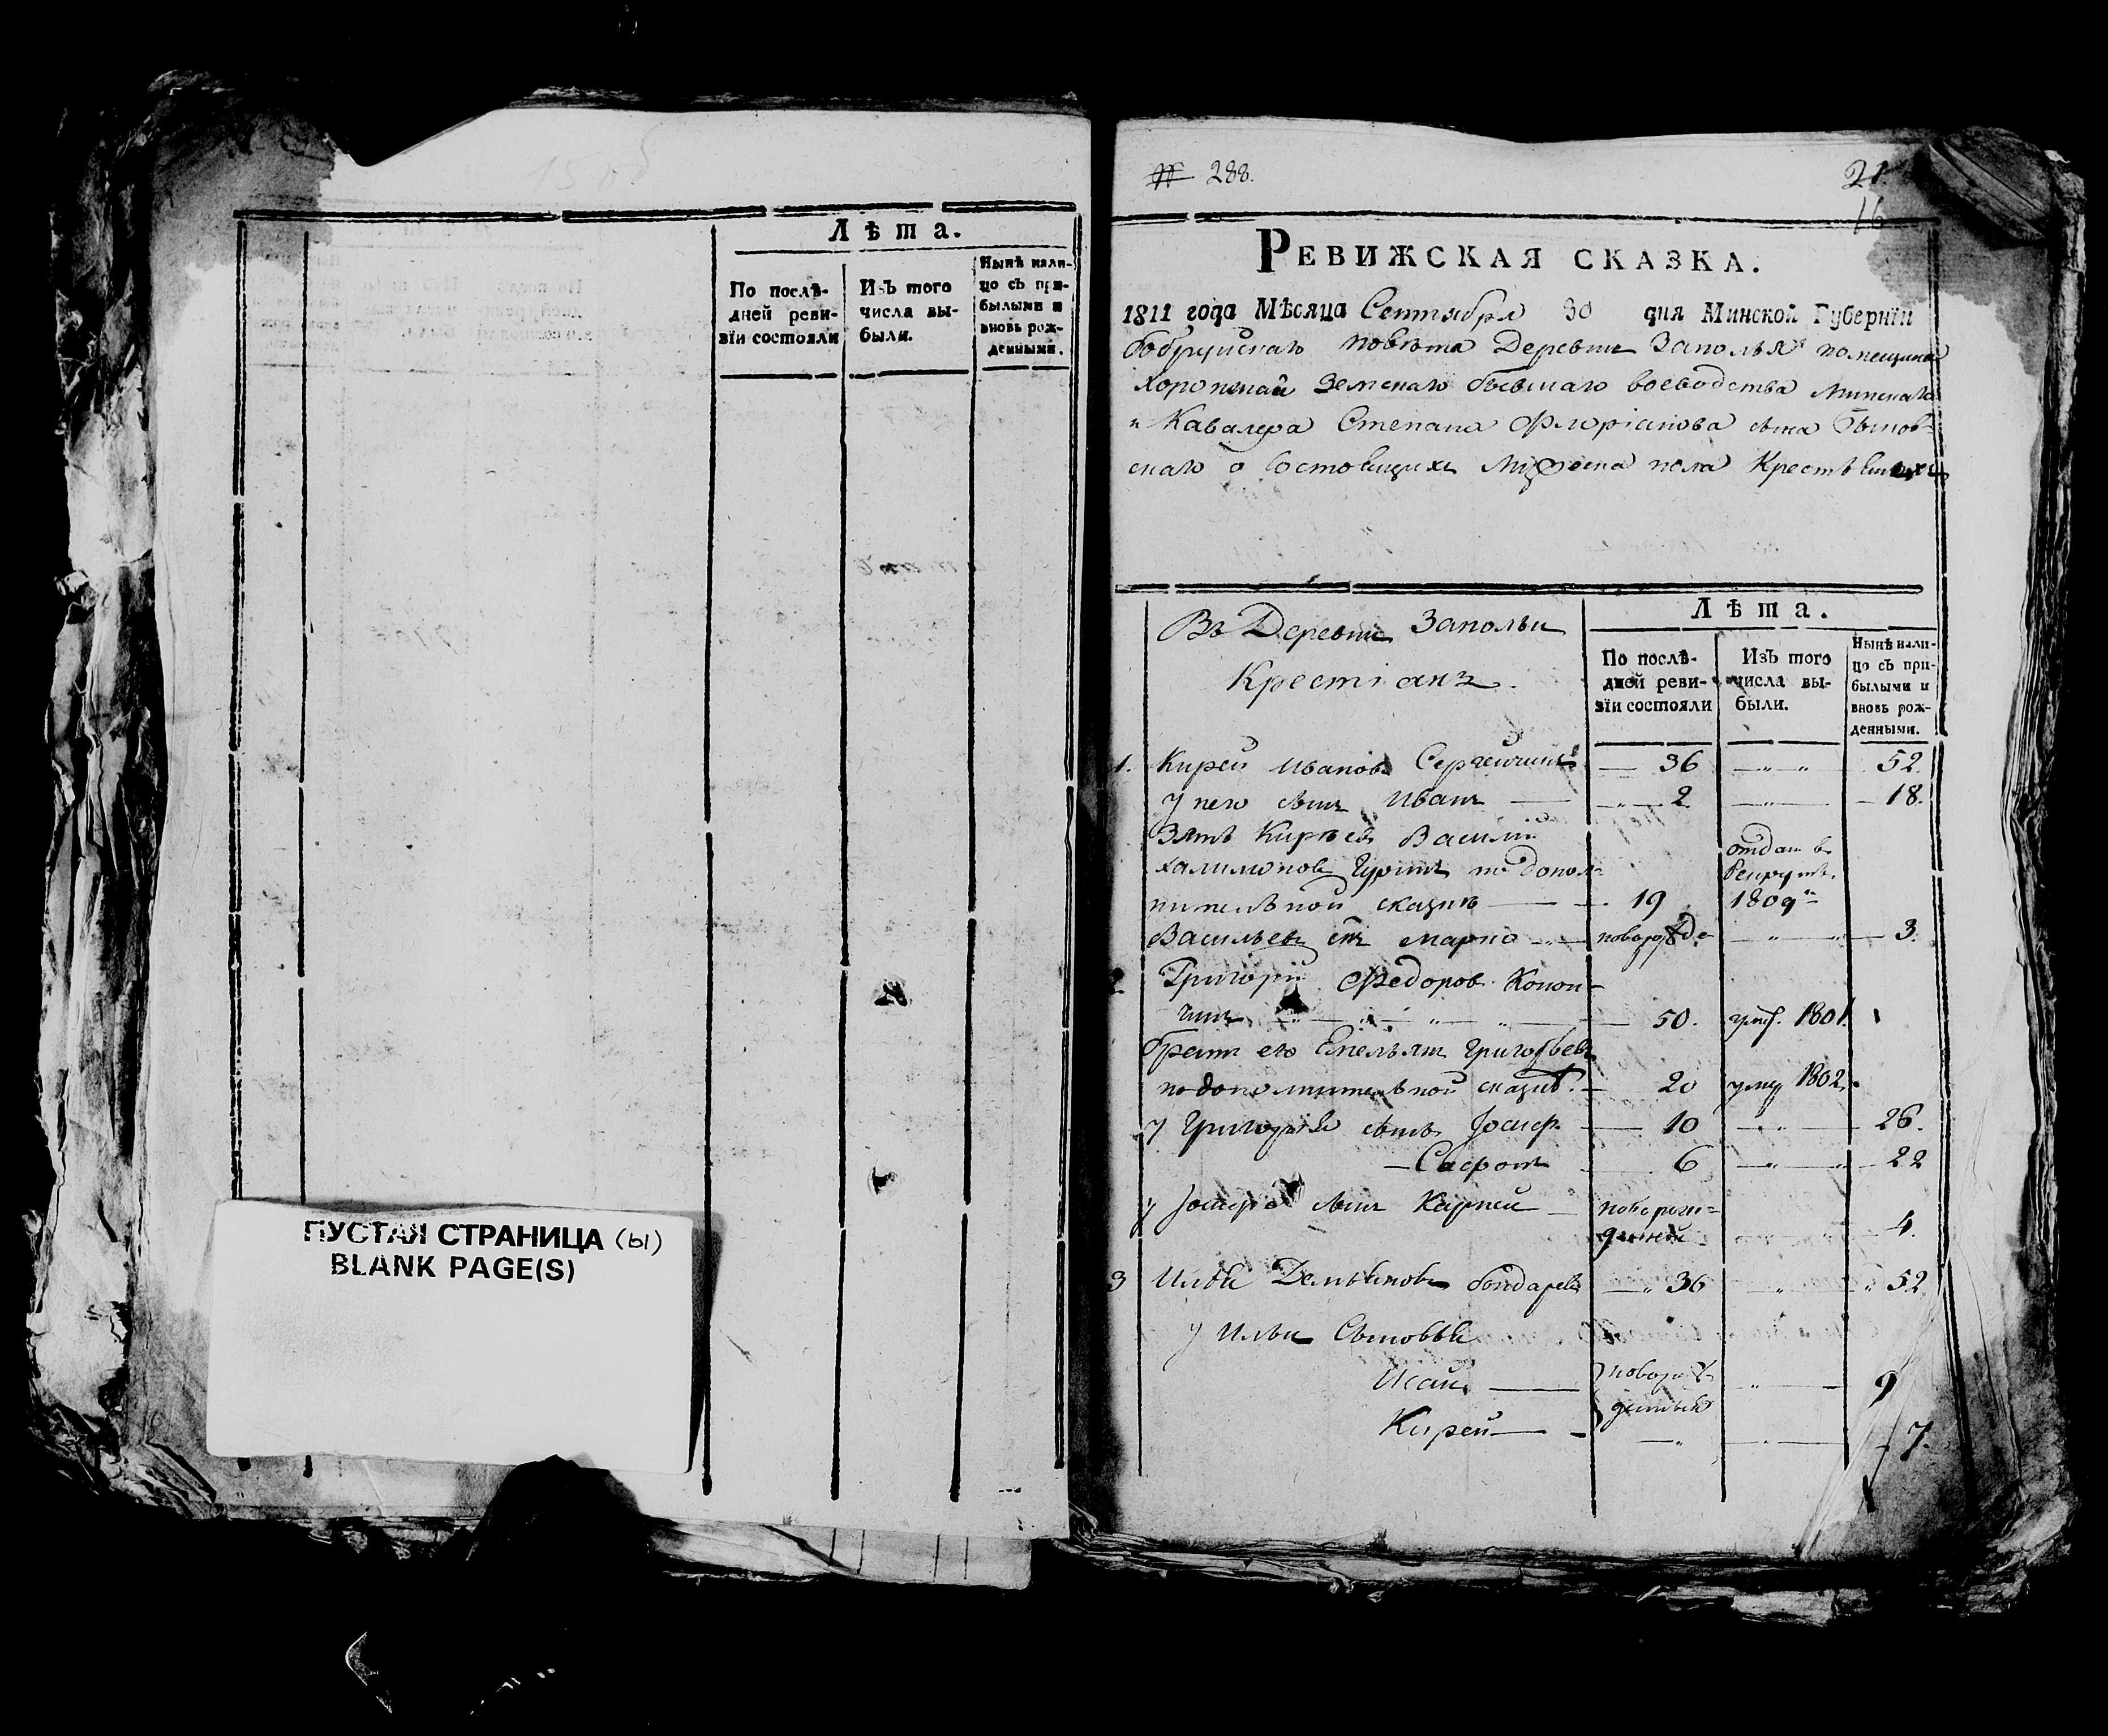 Лѣта.
По послѣ-
дней реви-
зїи состояли
Изъ того
числа вы-
были.
Нынѣ нали-
цо съ при-
былыми и
вновь рож-
денными.
ПУСТАЯ СТРАНИЦА (ы)
BLANK PAGE(S)
№ 288.
21.
16
РЕВИЖСКАЯ СКАЗКА.
1811 года Мѣсяца Сентября 30 дня Минской Губернїи
Бобруйскаго повѣта Деревни Заполья помещика
Хорон Земскаго бывшаго воеводства Минскаго
и Кавалера Степана Флоріанова сына
скаго о Состоящихъ Мужеска пола Крестьянахъ
Въ Деревни Запольи
Крестіянъ
Лѣта.
По послѣ-
дней реви-
зїи состояли
Изъ того
числа вы-
были.
Нынѣ нали-
цо съ при-
былыми и
вновь рож-
денными.
1. Кирей Ивановъ — 36 — „ „ 52.
У него сынъ Иванъ — 2 — „ — 18.
Зять Киреевъ Василій
Халимоновъ по допол-
нительной сказки — 19
отдан в
рекруты
1809
Васильевъ сынъ Марко — новорожде — „ — 3.
Григорій Федоровъ Конон-
чикъ — 50. умер. 1801.
братъ его Емельянъ Григорьевъ
по дополнительной сказкѣ. — 20 умер 1802.
у Григорія сынъ Іосиф — 10 — 26.
— Сафонъ 6 — „ — 22
у Іосифа сынъ Карней — новорож-
денной — 4.
3 Илья Демьяновъ бондаревъ — 36 — „ 52.
у Ильи Сыновья
Исай — новорож-
денныя — 9
Кирей — „ — 7.